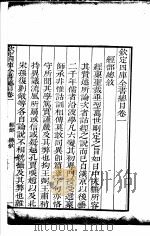 欽定四庫全書總目卷一
經部總敘
經稟聖裁垂型萬世刪定之旨如日中天無所容
其贊述所論次者詁經之說而已自漢京以後垂
二千年儒者沿波學凡六變其初專門授受遞稟
師承非惟詁訓相傳莫敢同異即篇章字句亦恪
守所聞其學篤實謹嚴及其弊也拘王弼王肅稍
持異議流風所扇或信或疑越孔賈啖趙以及北
宋孫復劉敞等各自論說不相統攝及其弊也雜